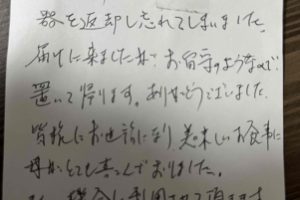 器を返却し忘れてしまいました。
届けに来ましたが、お留守のようなので
置いて帰ります。ありがとうございました。
皆様にお世話になり 美味しいお食事に
母がとても喜んでおりました。
機会 利用させて頂きます